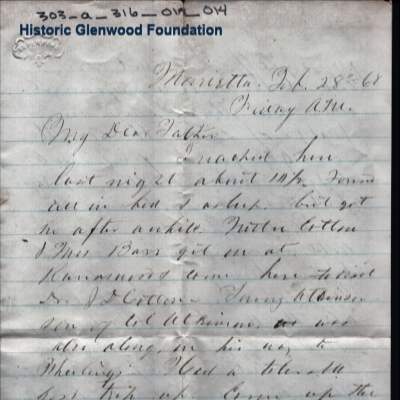 303-a-316-012-014
Historic Glenwood Foundation
Marietta, Feb. 28th 68
Friday A.M.
My Dear Father
I reached here
last night about 10½ found
all in bed & asleep. but got
in after awhile. Mister Cotton
& Mrs Barr got on at
come here to visit
Dr. J D Cotton - Atkinson
son of Col Atkinson, was
also along, on his way to
Wheeling. Had a tolerable
trip up. Came up the